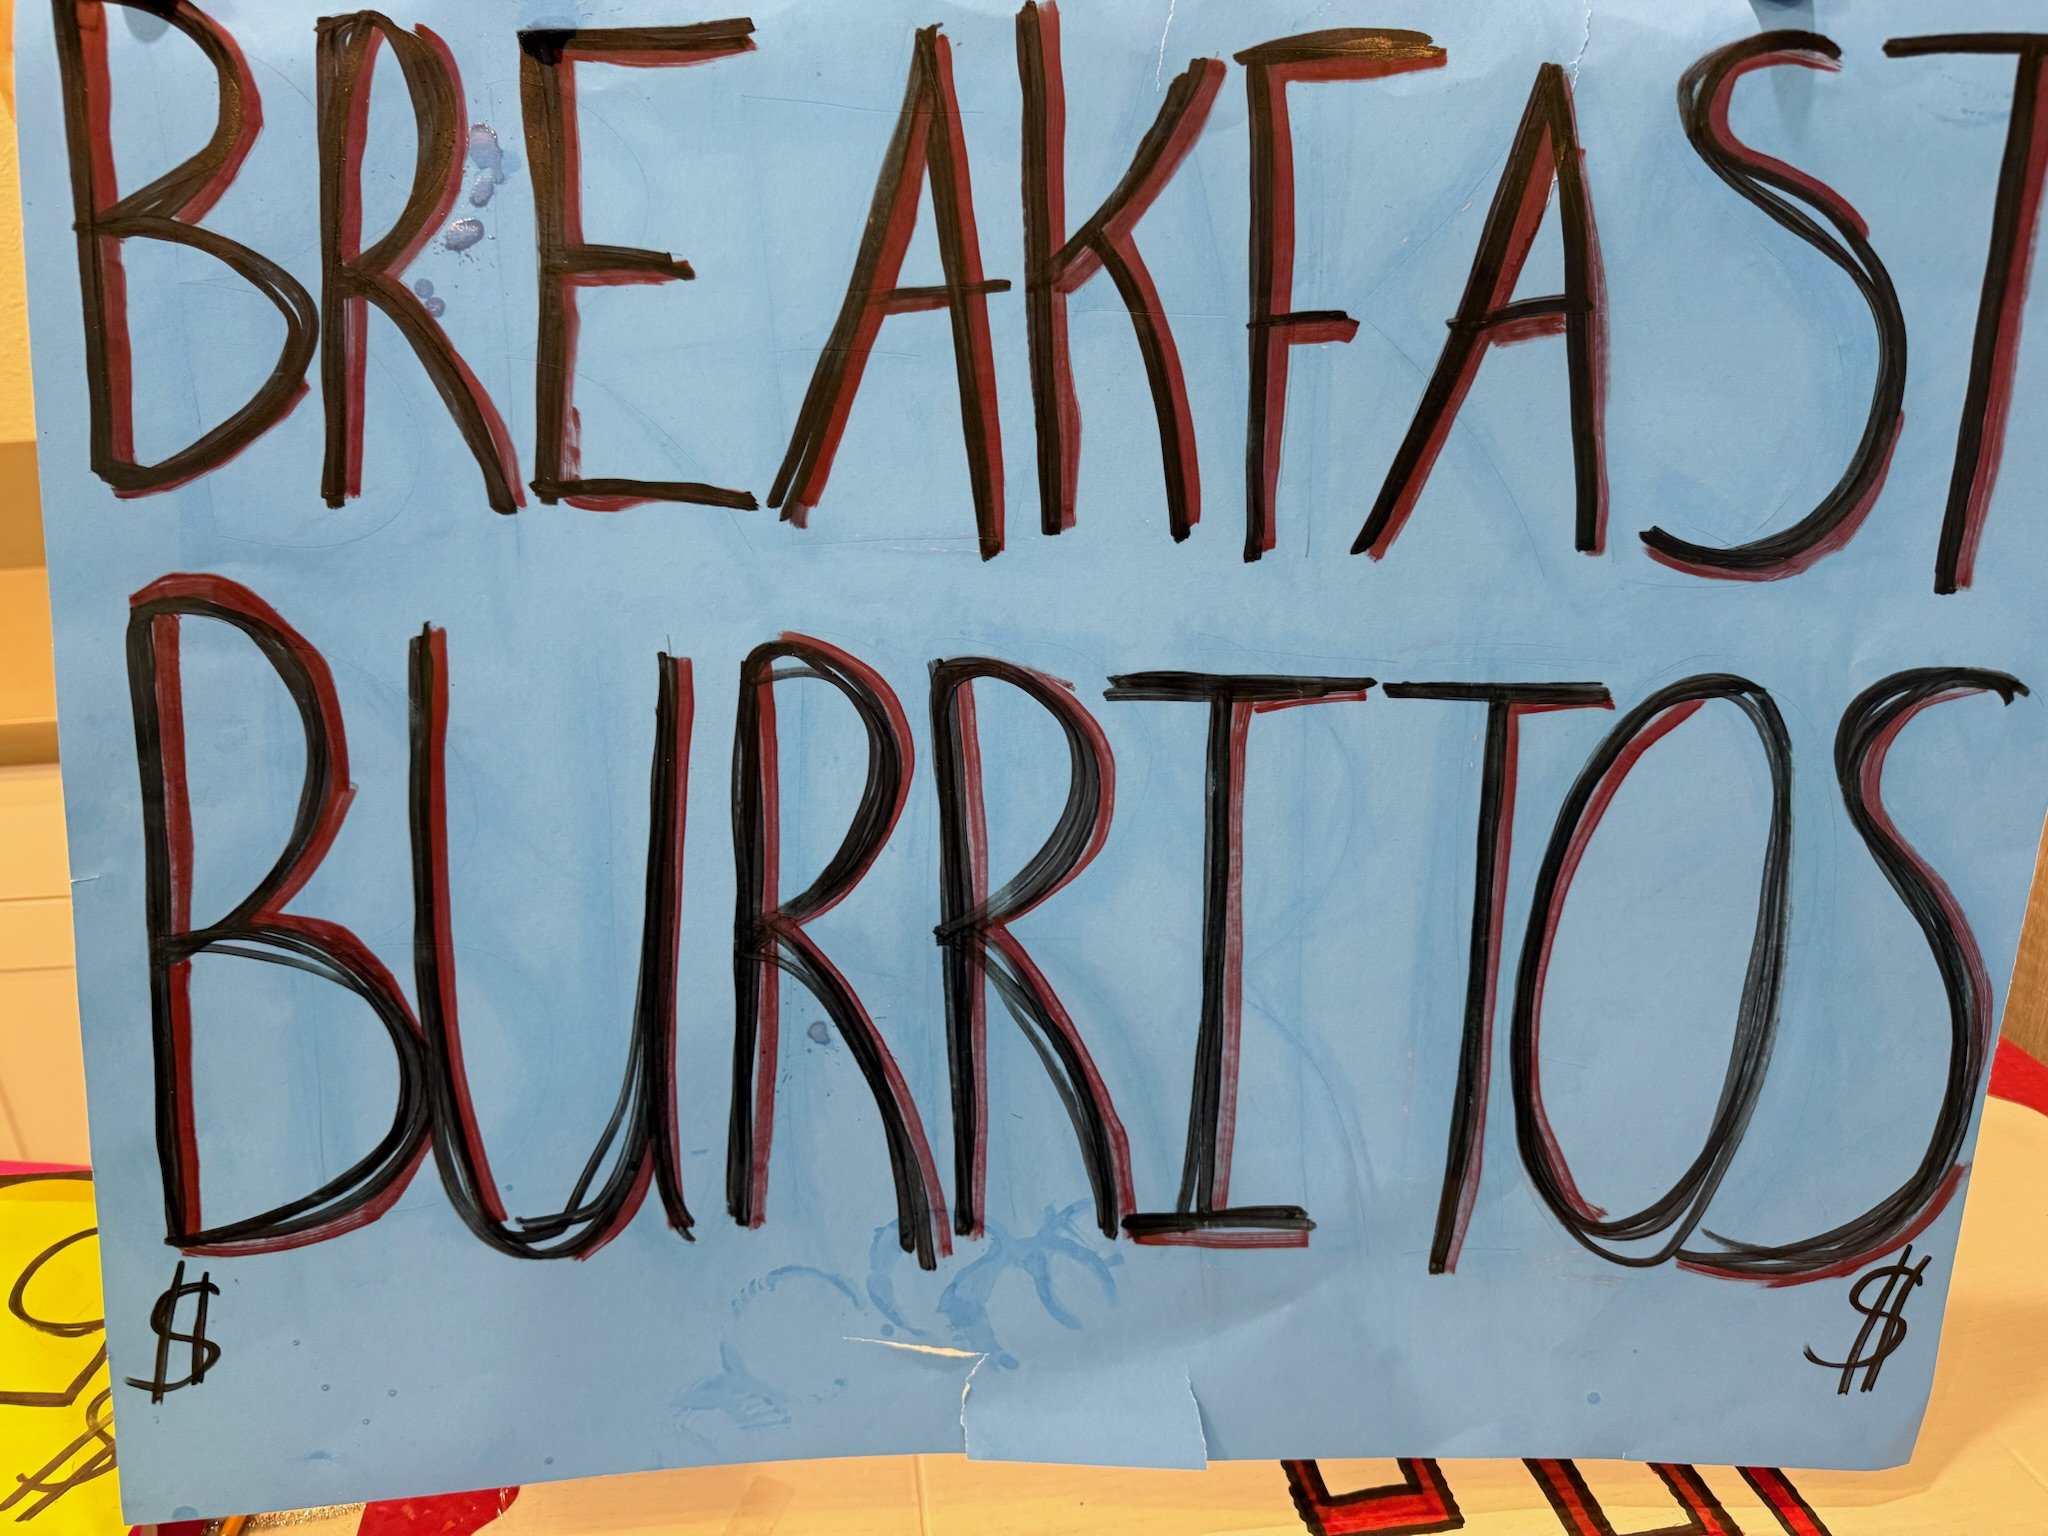 BREAKFAST
BURRITOS
$ $